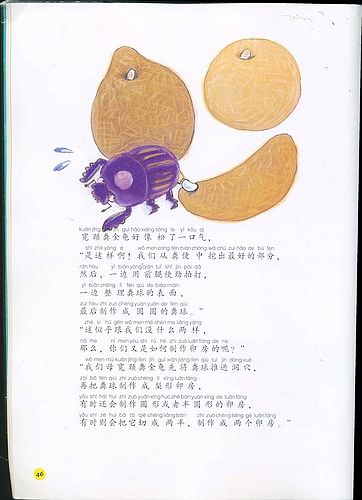 kuān jǐng fèn jīn guī hǎo xiàng sōng le yì kǒu qì
宽颈粪金龟好像松了一口气，
shì zhè yàng a wǒ men cóng fèn biàn zhōng wā chū zuì hǎo de bù fen
“是这样啊！我们从粪便中挖出最好的部分，
rán hòu yì biān yòng qián tuǐ shǐ jìn pāi dǎ
然后，一边用前腿使劲拍打，
yì biān zhěng lǐ fèn qiú de biǎo miàn
一边整理粪球的表面，
zuì hòu zhì zuò chéng yuán yuán de fèn qiú
最后制作成圆圆的粪球。”
zhè sì hū gēn wǒ men méi shén me liǎng yàng
“这似乎跟我们没什么两样，
nà me nǐ men yòu shì rú hé zhì zuò luǎn fáng de ne
那么，你们又是如何制作卵房的呢？”
wǒ men mǔ kuān jǐng fèn jīn guī xiān jiāng fèn qiú tuī jìn dòng xué
“我们母宽颈粪金龟先将粪球推进洞穴，
zài bǎ fèn qiú zhì zuò chéng lí xíng luǎn fáng
再把粪球制作成梨形卵房，
yǒu shí hái huì zhì zuò yuán xíng huò zhě bàn yuán xíng de luǎn fáng
有时还会制作圆形或者半圆形的卵房，
yǒu shí zé huì bǎ tā qiē chéng liǎng bàn zhì zuò chéng liǎng gè luǎn fáng
有时则会把它切成两半，制作成两个卵房。”
46